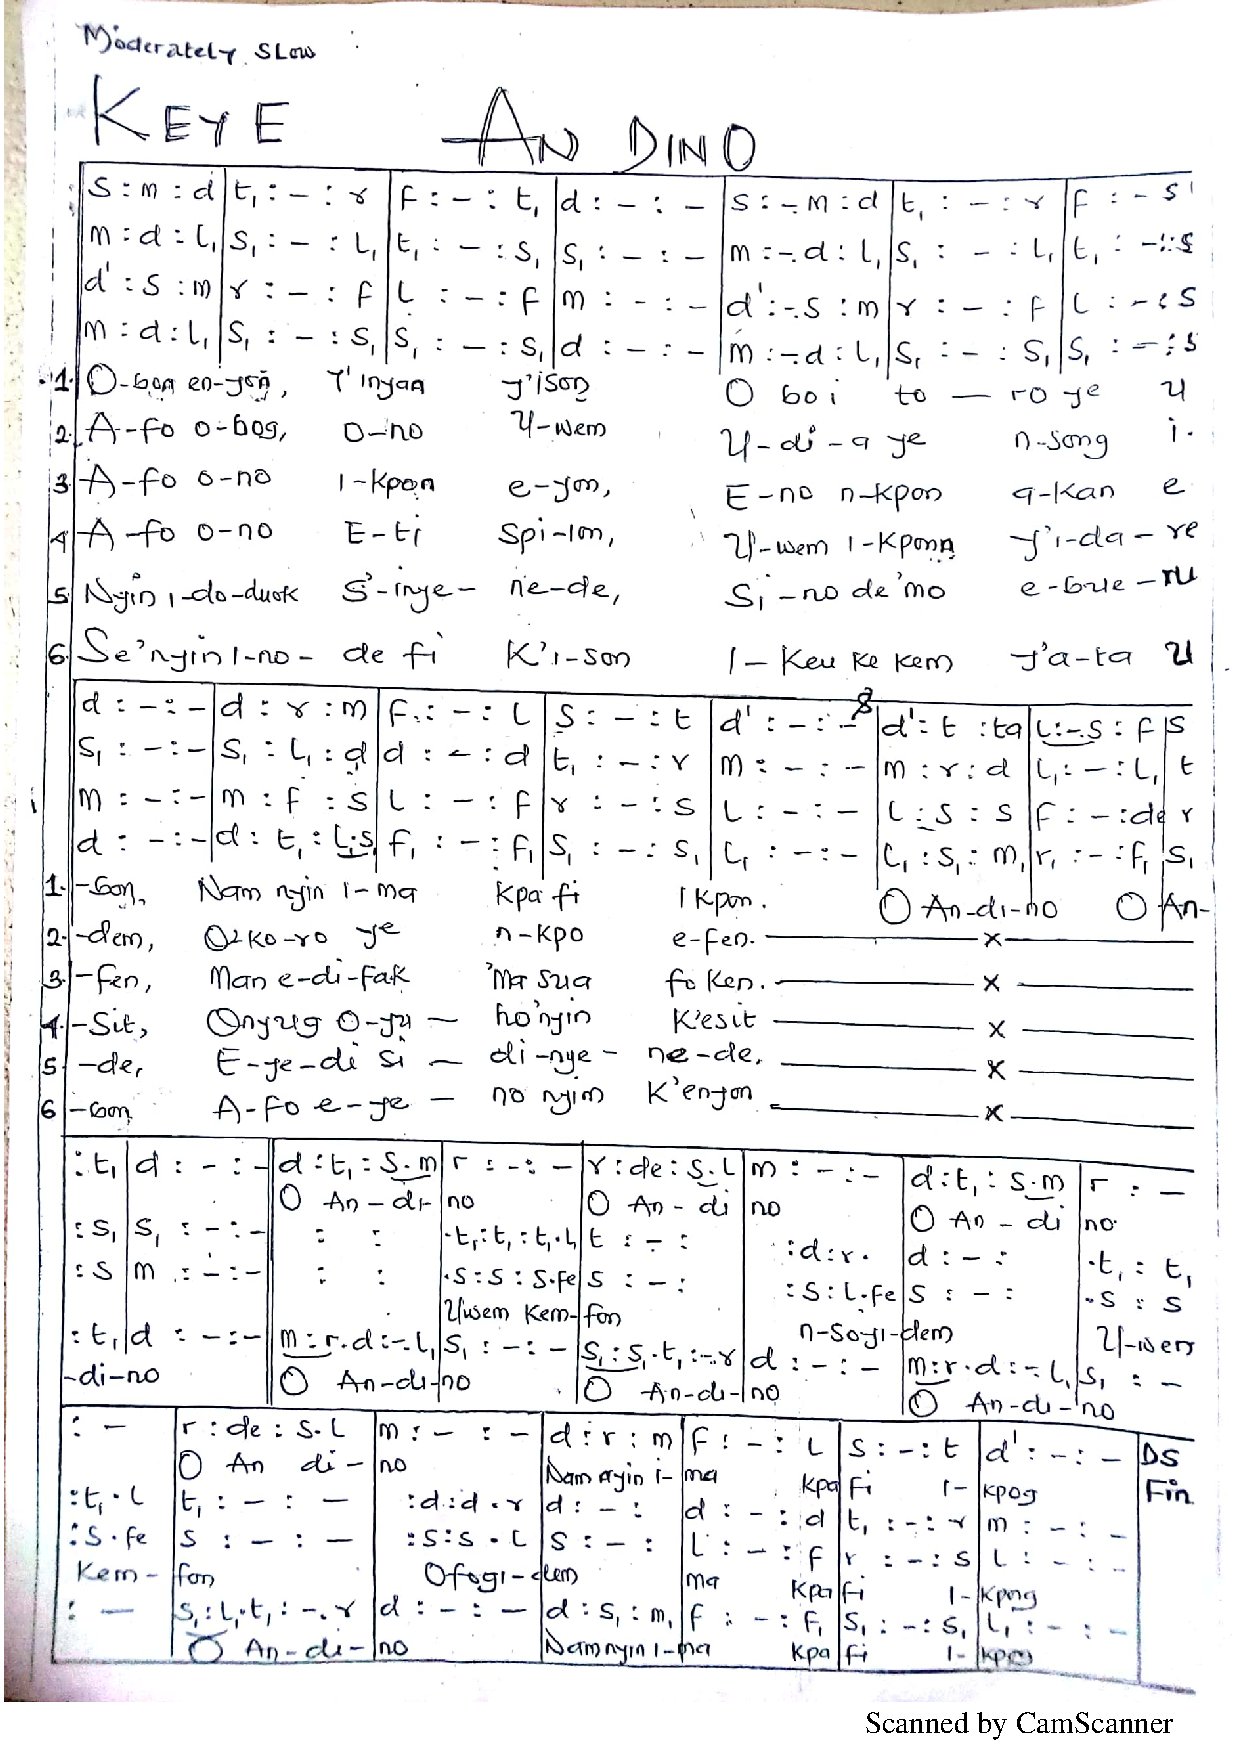 Moderately Slow
KEYE AN DINO
s : m : d | t₁ : – : r | f : – : t₁ | d : – : – | s : –. m : d | t₁ : – : r | f : – s
m : d : l₁ | s₁ : – : l₁ | t₁ : – : s₁ | s₁ : – : – | m : –. d : l₁ | s₁ : – : l₁ | t₁ : – : s
d' : s : m | r : – : f | l : – : f | m : – : – | d' : –. s : m | r : – : f | l : – : s
m : d : l₁ | s₁ : – : s₁ | s₁ : – : s₁ | d : – : – | m : –. d : l₁ | s₁ : – : s₁ | s₁ : – : s
1. O-bon en-yon, Y'inyan y'ison O boi to — ro ye U
2. A-fo o-bog, O-no U-wem U-di-a ye n-song i.
3. A-fo o-no I-kpon e-yon, E-no n-kpon a-kan e
4. A-fo o-no E-ti Spi-ion, U-wem I-kponn y'i-da-re
5. Nyin i-do-duok S'-inye- ne-de, Si-no de'mo e-bue-ru
6. Se'nyin I-no- de fi K'i-son I- Keu ke kem y'a-ta U
d : – : – | d : r : m | f : – : l | s : – : t | d' : – : – | d' : t : ta | l : –. s : f | s
s₁ : – : – | s₁ : l₁ : d | d : – : d | t₁ : – : r | m : – : – | m : r : d | l₁ : – : l₁ | t
m : – : – | m : f : s | l : – : f | r : – : s | l : – : – | l : s : s | f : – : de | r
d : – : – | d : t₁ : l₁. s₁ | f₁ : – : f₁ | s₁ : – : s₁ | l₁ : – : – | l₁ : s₁ : m₁ | r₁ : – : f₁ | s₁
1. -bon, Nam nyin i-ma kpa fi Ikpon. O An-di-no O An-
2. -dem, ko-ro ye n-kpo e-fen. — x —
3. -fen, Man e-di-fak 'Ma sua fo ken. — x —
4. -Sit, Onyug O-yu — ho'nyin K'esit — x —
5 -de, E-ye-di si — di-nye- ne-de. — x —
6 -bon A-fo e-ye — no nyim K'enyon — x —
: t₁ | d : – : – | d : t₁ : s. m | r : – : – | r : de : s. l | m : – : – | d : t₁ : s. m | r : –
O An-di- no O An-di no O An-di no.
: s₁ | s₁ : – : – | : : | . t₁ : t₁ : t₁. l₁ | t : – : | : d : r. | d : – : | . t₁ : t₁
: s | m : – : – | : : | . s : s : s. fe | s : – : | : s : l. fe | s : – : | . s : s
Uwem Kem-fon n-soyi-dem U-wem
: t₁ | d : – : – | m : r. d : –. l₁ | s₁ : – : – | s₁ : s₁. t₁ : –. r | d : – : – | m : r. d : –. l₁ | s₁ : –
-di-no O An-di-no O An-di-no O An-di-no
: – | r : de : s. l | m : – : – | d : r : m | f : – : l | s : – : t | d' : – : – | DS
O An di- no Nam nyin i- ma kpa fi I- kpog Fin
: t₁. l | t₁ : – : – | : d : d. r | d : – : | d : – : d | t₁ : – : r | m : – : –
: s. fe | s : – : – | : s : s. l | s : – : | l : – : f | r : – : s | l : – : –
Kem- fon Ofogi-dem ma kpa fi I- kpong
: – | s₁ : l₁. t₁ : –. r | d : – : – | d : s₁ : m₁ | f : – : f₁ | s₁ : – : s₁ | l₁ : – : –
O An-di- no Nam nyin i-ma kpa fi I-
Scanned by CamScanner